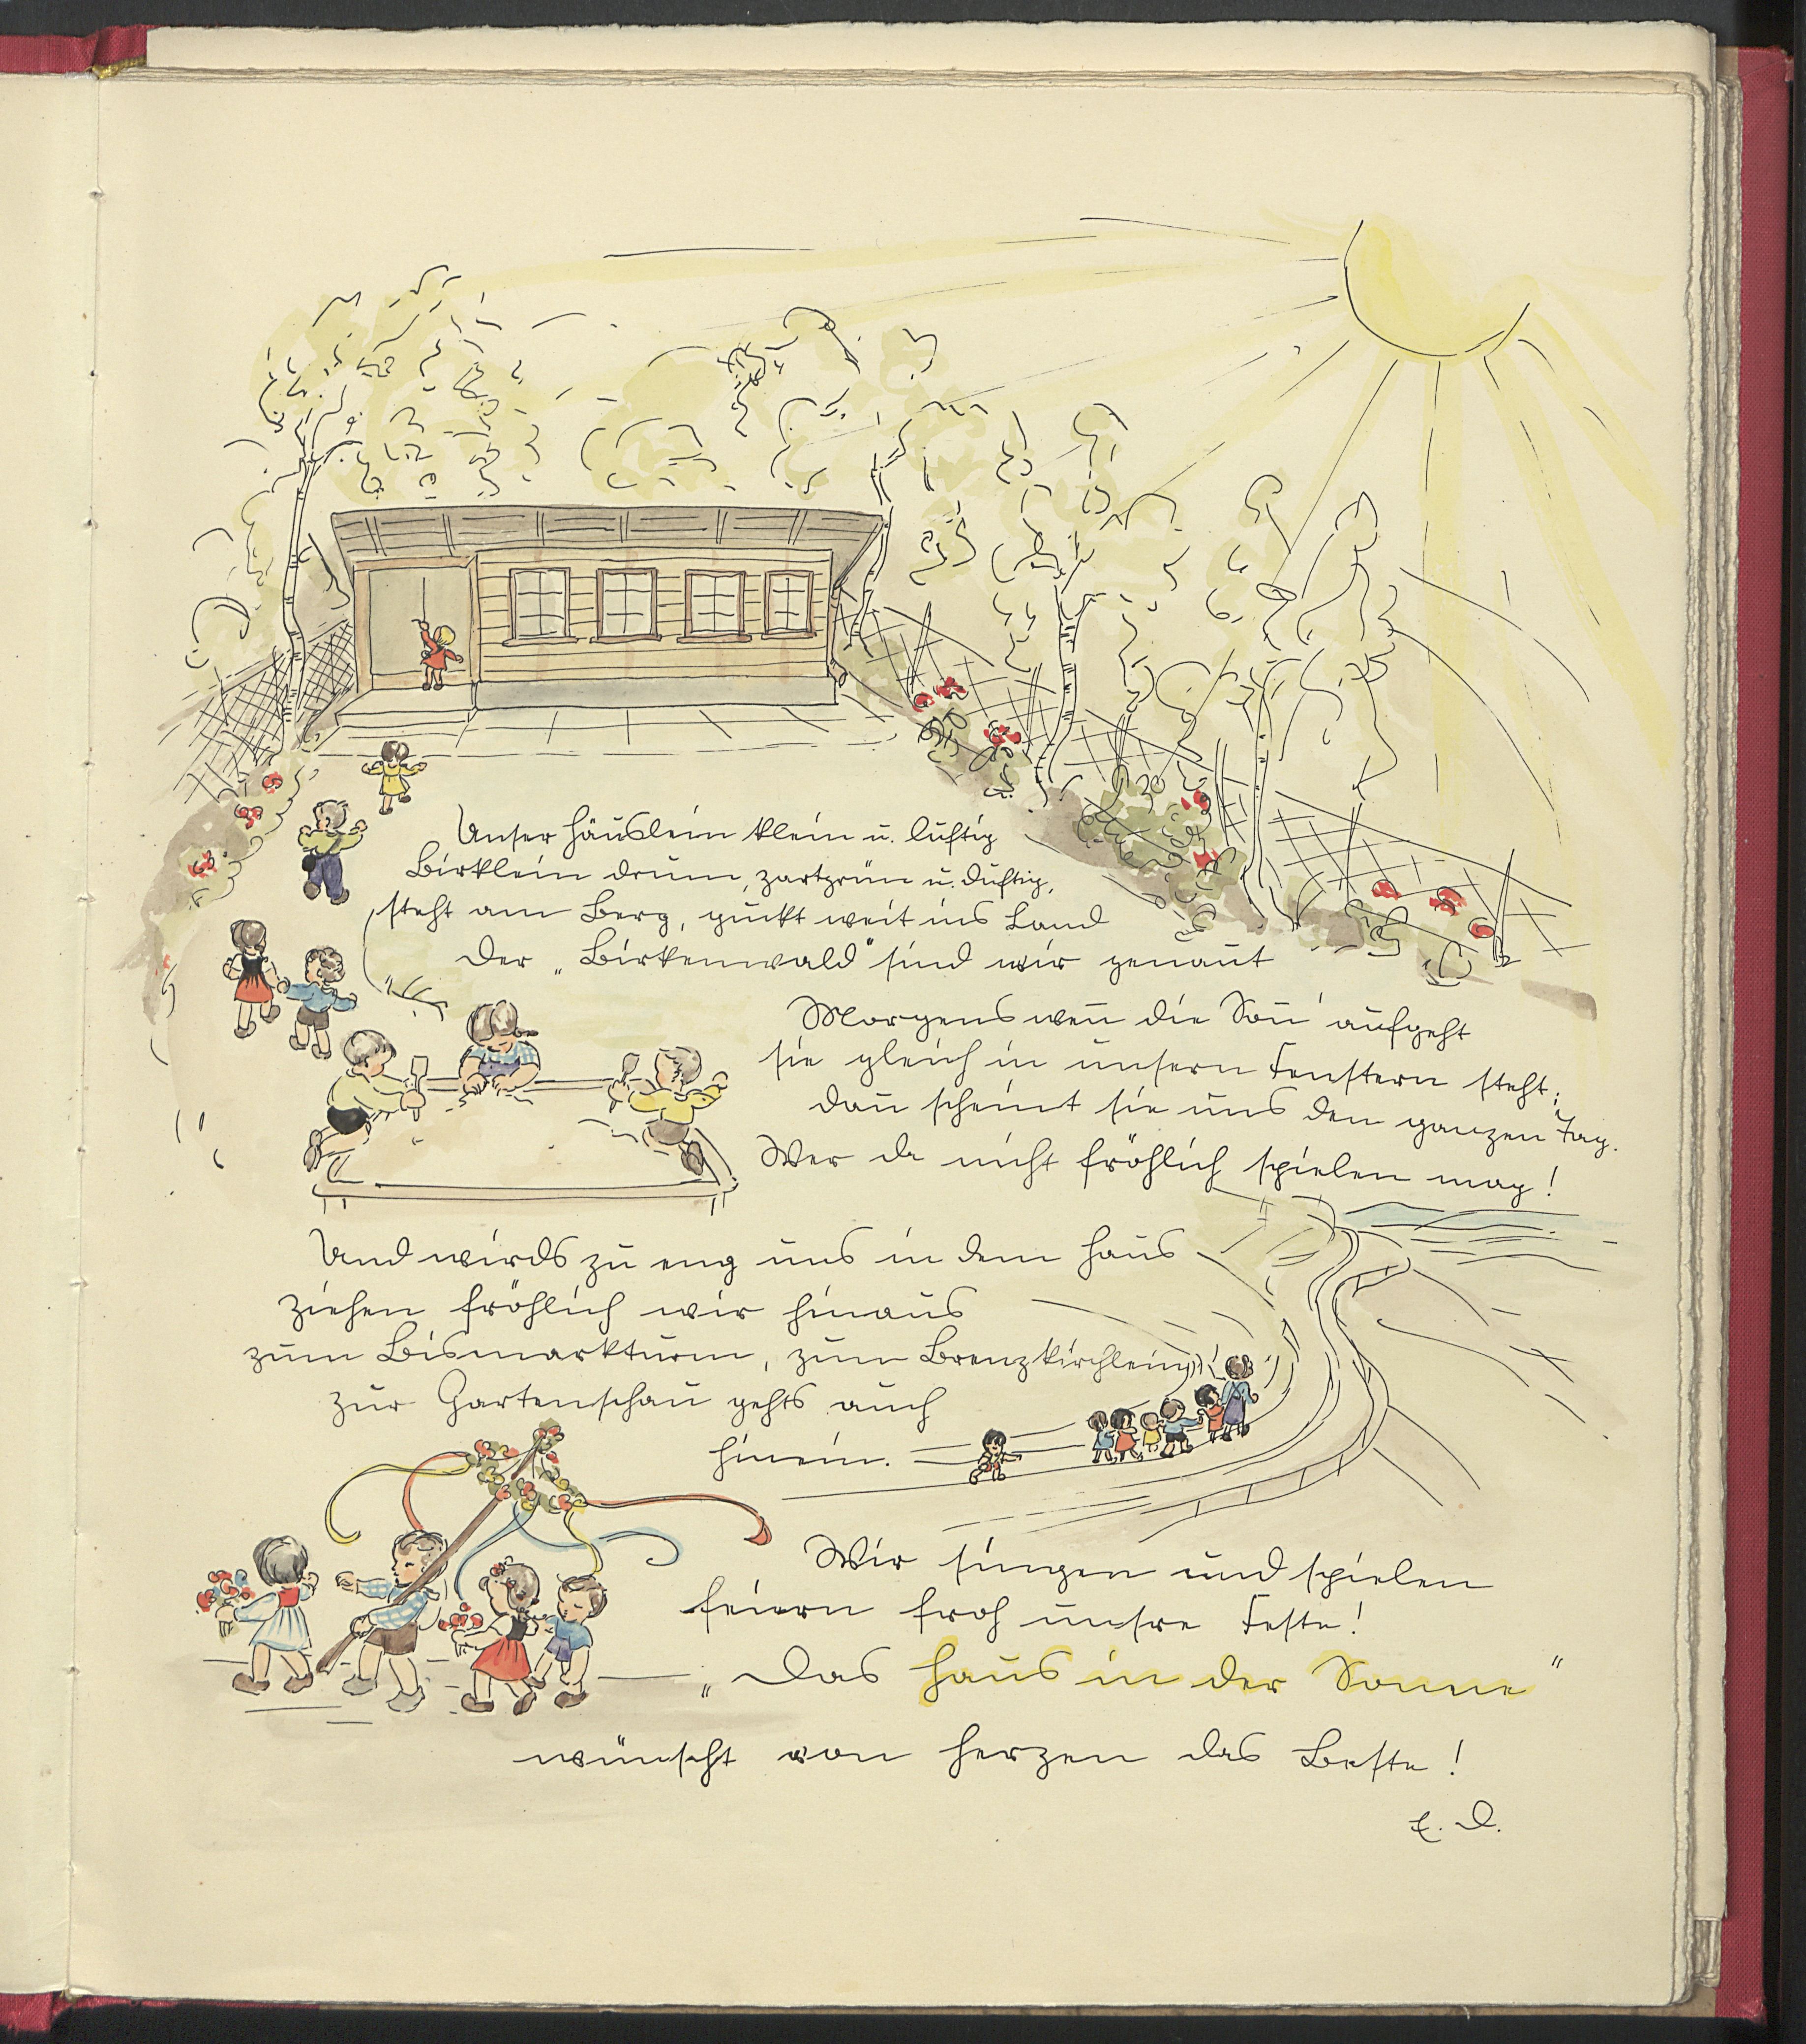 Unser Häuslein klein u. luftig
Birklein drum, zartgrün u. duftig,
steht am Berg, guckt weit ins Land
Der „Birkenwald" sind wir genan̄t
Morgens wen̄ die Son̄' aufgeht
sie gleich in unsern Fenstern steht;
dan̄ scheint sie uns den ganzen Tag.
Wer da nicht fröhlich spielen mag!
Und wirds zu eng uns in dem Haus
ziehen fröhlich wir hinaus
zum Bismarkturm, zum Brenzkirchlein
zur Gartenschau gehts auch
hinein.
Wir singen und spielen
feiern froh unsre Feste!
„Das Haus in der Sonne"
wünscht von Herzen das Beste!
E. D.